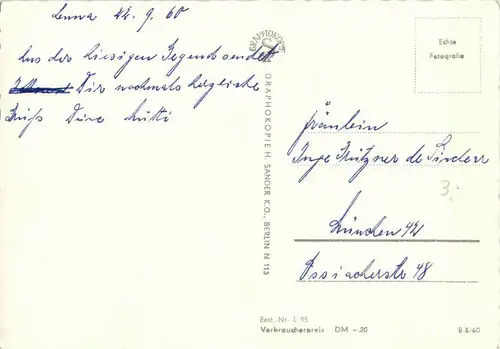 Leuna 22. 9. 60
Aus der hiesigen Gegend sendet
Dir nochmals herzliche
Grüße Deine Mutti
GRAPHOKOPIE
GRAPHOKOPIE H. SANDER K.G., BERLIN N 113
Echte
Fotografie
Fräulein
Inge Kützner de
3,-
München 42
Ossiacherstr 48
Best.-Nr. L 95
Verbraucherpreis DM -.20
B 8/60